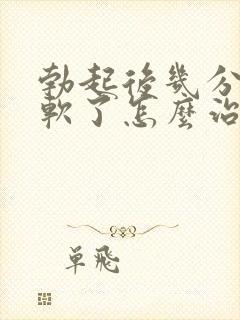 勃起後幾分
軟了怎麼治
單飛